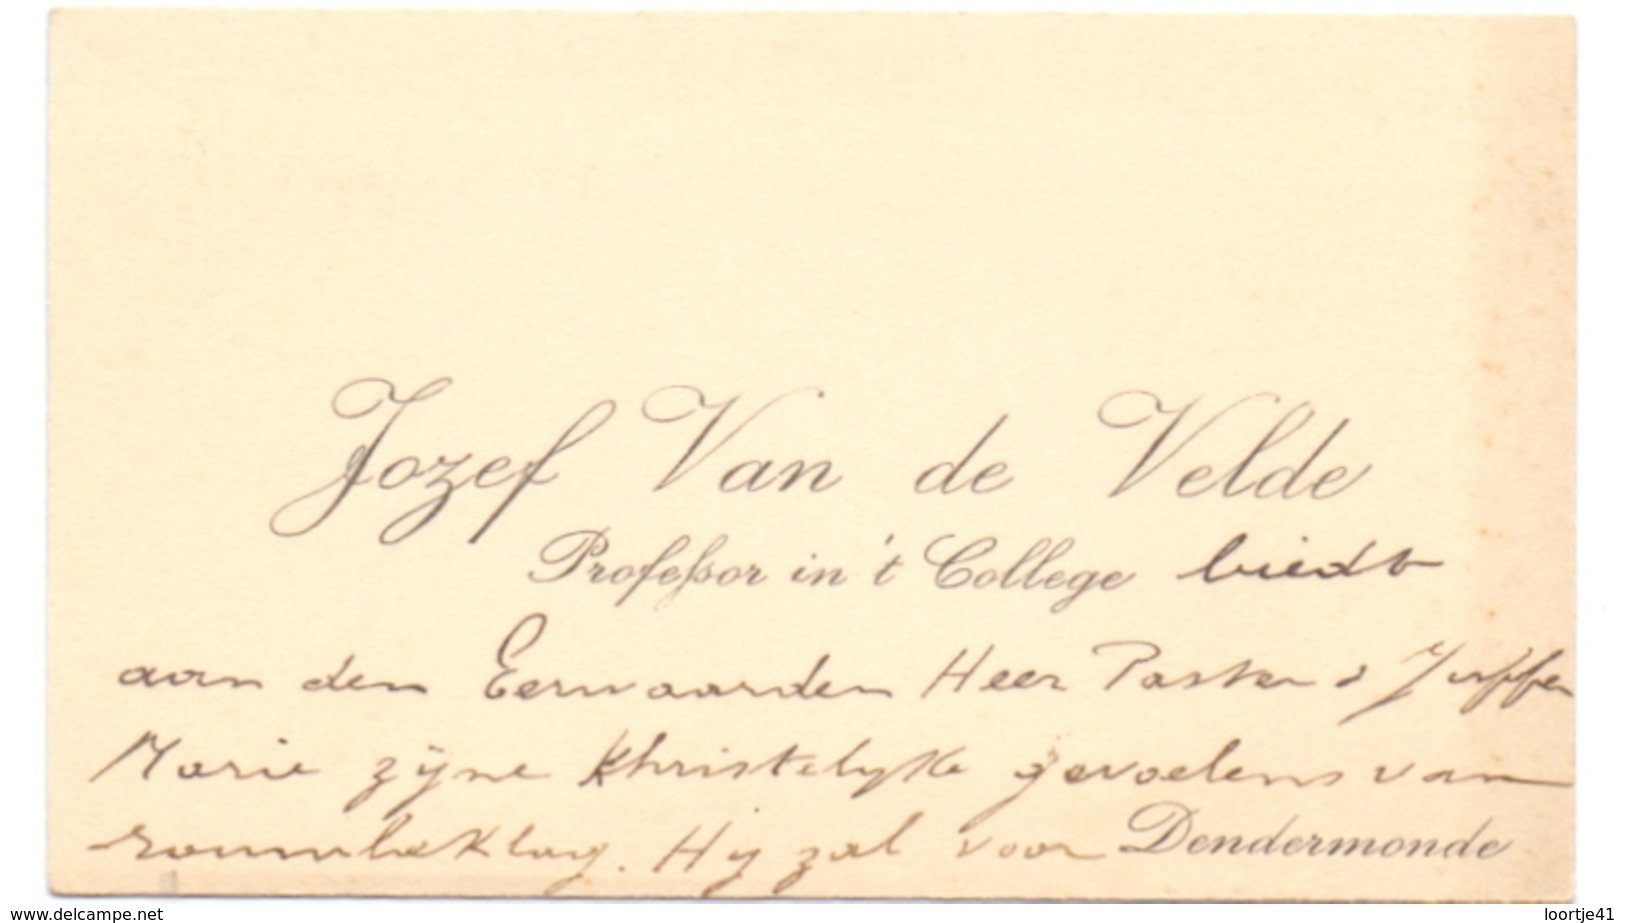 Jozef Van de Velde
Professor in 't College biedt
aan den Eerwaarden Heer Pastor & Juffer
Marie zijne Khristelyke gevoelens van
rouwbeklag. Hij zal voor Dendermonde
www.delcampe.net
loortje41